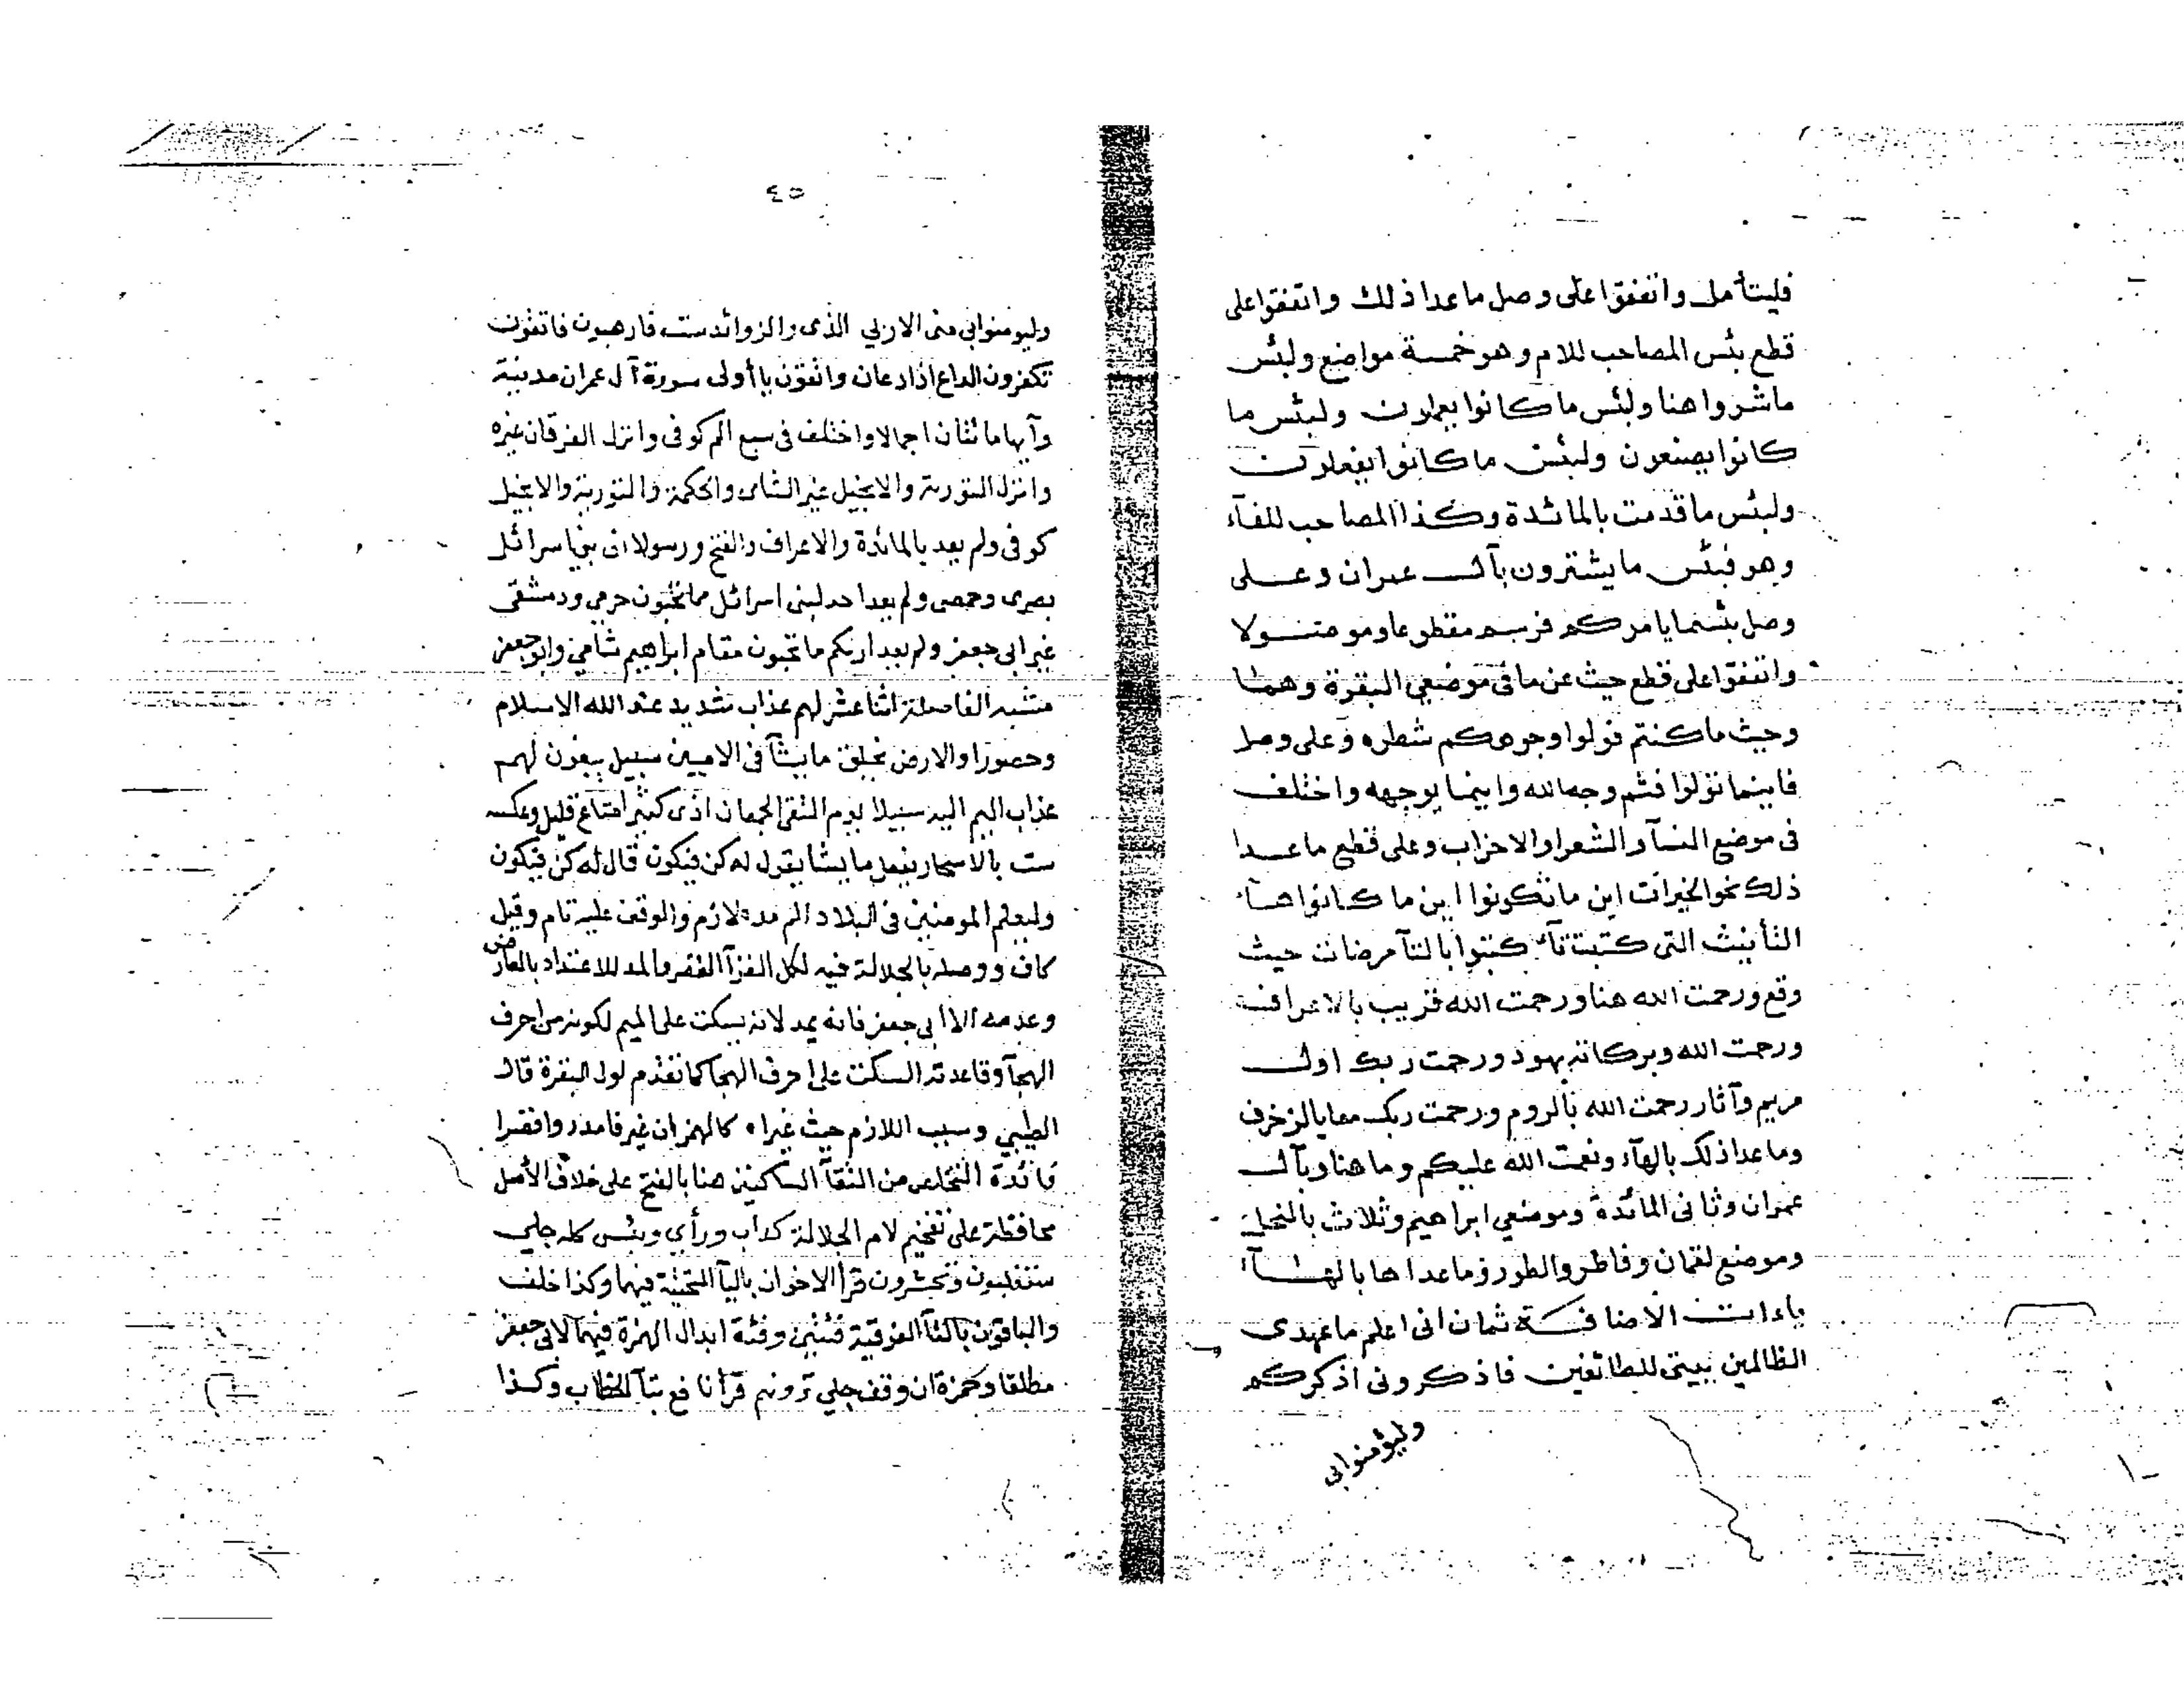 فليتأمل واتفقوا على وصل ماعدا ذلك واتفقوا على
قطع بئس المصاحب للام وهو خمسة مواضع ولبئس
ماشروا هنا ولبئس ما كانوا يعملون ولبئس ما
كانوا يصنعون ولبئس ما كانوا يفعلون
ولبئس ما قدمت بالمائدة وكذا المصاحب للفآء
وهو فبئس ما يشترون بآل عمران وعلى
وصل بئسما يامركم فرسم مقطوعا وموصولا
واتفقوا على قطع حيث عن ما في موضعي البقرة وهما
وحيث ما كنتم فولوا وجوهكم شطره وعلى وصل
فاينما تولوا فثم وجه الله واينما يوجهه واختلف
في موضع النسآ والشعرا والاحزاب وعلى قطع ماعدا
ذلك نحو الخيرات اين ما تكونوا اين ما كانوا هآء
التأنيث التي كتبت تآء كتبوا بالتآ مرضات حيث
وقع ورحمت الله هنا ورحمت الله قريب بالاعراف
ورحمت الله وبركاته بهود ورحمت ربك اول
مريم وآثار رحمت الله بالروم ورحمت ربك معا بالزخرف
وماعدا ذلك بالهآء ونعمت الله عليكم وما هنا وبآل
عمران وثاني المائدة وموضعي ابراهيم وثلاث بالنحل
وموضع لقمان وفاطر والطور وماعداها بالهآء
ياءات الاضافة ثمان اني اعلم ما عهدي
الظالمين بيتي للطائفين فاذكروني اذكركم
وليؤمنوا بي
٤٥
وليومنوا بي مني الا ربي الذي والزوائد ست فارهبون فاتقون
تكفرون الداع اذا دعان واتقون يا أولى سورة آل عمران مدنية
وآيها مائتان اجمالا واختلف في سبع الم كوفي وانزل الفرقان غيره
وانزل التورية والانجيل غير الشامي والحكمة والتورية والانجيل
كوفي ولم يعد بالمائدة والاعراف والفتح ورسولا الى بني اسرائل
بصري وحمصي ولم يعد احد لبني اسرائل مما تحبون حرمي ودمشقي
غير ابي جعفر ولم يعد اريكم ما تحبون مقام ابراهيم شامي وابو جعفر
مشبه الفاصلة اثنا عشر لهم عذاب شديد عند الله الاسلام
وحصورا والارض يخلق ما يشآ في الاميين سبيل يبغون لهم
عذاب اليم اليه سبيلا يوم التقى الجمعان اذى كثيرا متاع قليل وعكسه
ست بالاسحار يفعل ما يشا يقول له كن فيكون قال له كن فيكون
وليعلم المومنين في البلاد الم مده لازم والوقف عليه تام وقيل
كاف ووصله بالجلالة فيه لكل القرآ القصر والمد للاعتداد بالعارض
وعدمه الا ابي جعفر فانه يمد لانه يسكت على الميم لكونه من احرف
الهجآ وقاعدته السكت على احرف الهجا كما تقدم اول البقرة قال
الطيبي وسبب اللازم حيث غيرا كالهمز ان غير فامدد واقصرا
فائدة التخلص من التقآ الساكنين هنا بالفتح على خلاف الأصل
محافظة على تفخيم لام الجلالة كداب ورأي وبئس كله جلي
ستغلبون وتحشرون قرأ الاخوان باليآ التحتية فيهما وكذا خلف
والباقون بالتآ الفوقية فئتين وفئة ابدال الهمزة فيهما لابي جعفر
مطلقا وحمزة ان وقف جلي ترونهم قرأ نافع بتآ الخطاب وكذا